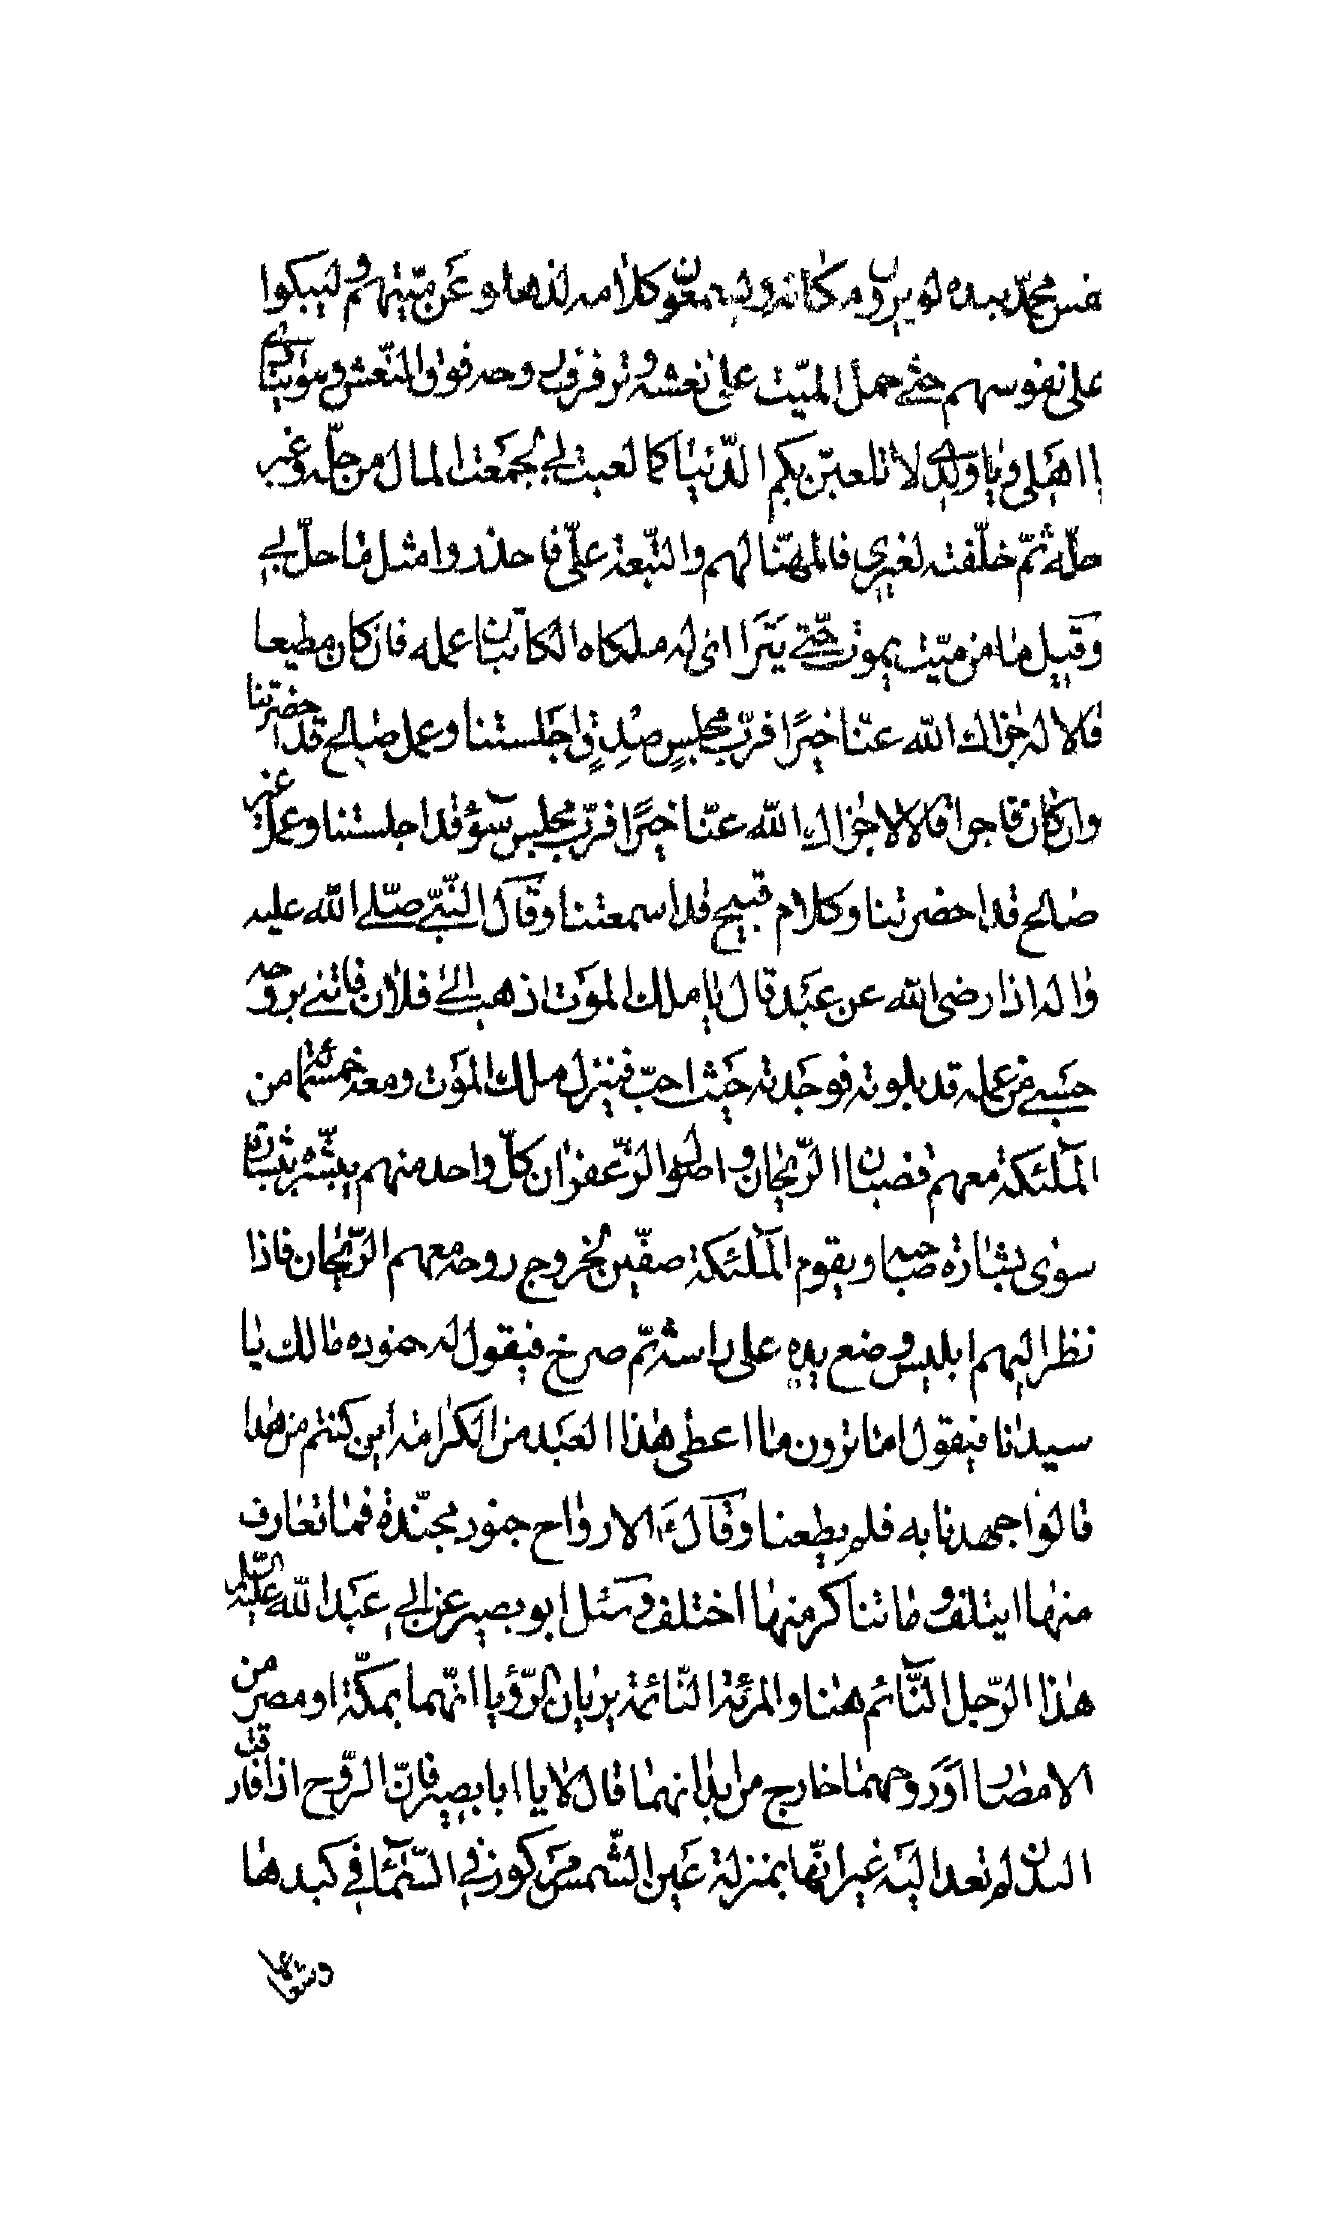 نفس محمّد بيده لو يرون مكانه ويسمعون كلامه لذهلوا عن ميّتهم ولبكوا
على نفوسهم حتّى حمل الميّت على نعشه وترفرف روحه فوق النّعش وهو ينادى
يا اهلى ويا ولدى لا تلعبنّ بكم الدّنيا كما لعبت بى جمعت المال من حلّه وغير
حلّه ثمّ خلّفته لغيرى فالمهنّا لهم والتّبعة علىّ فاحذروا مثل ما حلّ بى
وقيل ما من ميّت يموت حتّى يترااى له ملكاه الكاتبان عمله فان كان مطيعا
قالا له جزاك الله عنّا خيرًا فربّ مجلس صدق اجلستنا وعمل صالح قد احضرتنا
وان كان فاجرا قالا لا جزاك الله عنّا خيرًا فربّ مجلس سوء قد اجلستنا وعمل غير
صالح قد احضرتنا وكلام قبيح قد اسمعتنا وقال النّبىّ صلّى الله عليه
واله اذا رضى الله عن عبد قال يا ملك الموت اذهب الى فلان فاتنى بروحه
حسبى من عمله قد بلوته فوجدته حيث احبّ فينزل ملك الموت ومعه خمسمائة من
الملئكة معهم قضبان الرّيحان واصول الزّعفران كلّ واحد منهم يبشّره ببشارة
سوى بشارة صاحبه ويقوم الملئكة صفّين لخروج روحه معهم الرّيحان فاذا
نظر اليهم ابليس وضع يده على راسه ثمّ صرخ فيقول له جنوده مالك يا
سيدنا فيقول اما ترون ما اعطى هذا العبد من الكرامة اين كنتم من هذا
قالوا جهدنا به فلم يطعنا وقال ع الارواح جنود مجنّدة فما تعارف
منها ايتلف وما تناكر منها اختلف وسئل ابو بصير عن ابى عبد الله عليه السّلم
هذا الرّجل النّائم هنا والمرئة النّائمة يريان الرّؤيا انّهما بمكّة او مصر من
الامصار او روحهما خارج من ابدانهما قال لا يا ابا بصير فانّ الرّوح اذا فارقت
البدن لم تعد اليه غير انّها بمنزلة عين الشّمس مركوزة فى السّماء فى كبدها
وشعاعها